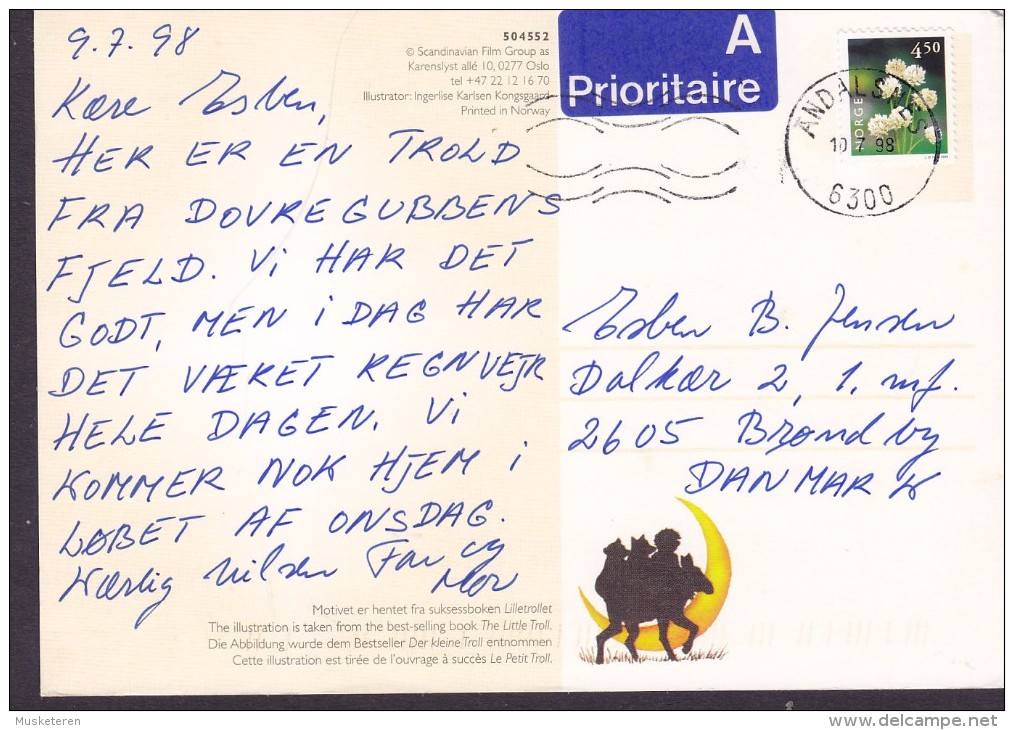 9.7.98
504552
© Scandinavian Film Group as
Karenslyst allé 10, 0277 Oslo
tel +47 22 12 16 70
Illustrator: Ingerlise Karlsen Kongsgaard
Printed in Norway
A
Prioritaire
4.50
NORGE
ÅNDALSNES
10 7 98
6300
Kære Esben,
HER ER EN TROLD
FRA DOVREGUBBENS
FJELD. Vi HAR DET
GODT, MEN i DAG HAR
DET VÆRET REGNVEJR
HELE DAGEN. Vi
KOMMER NOK HJEM i
LØBET AF ONSDAG.
Kærlig hilsen Far og
Mor
Esben B. Jensen
Dalkær 2, 1. mf.
2605 Brøndby
DANMARK
Motivet er hentet fra suksessboken Lilletrollet
The illustration is taken from the best-selling book The Little Troll.
Die Abbildung wurde dem Bestseller Der kleine Troll entnommen
Cette illustration est tirée de l'ouvrage à succès Le Petit Troll.
Musketeren
delcampe.net